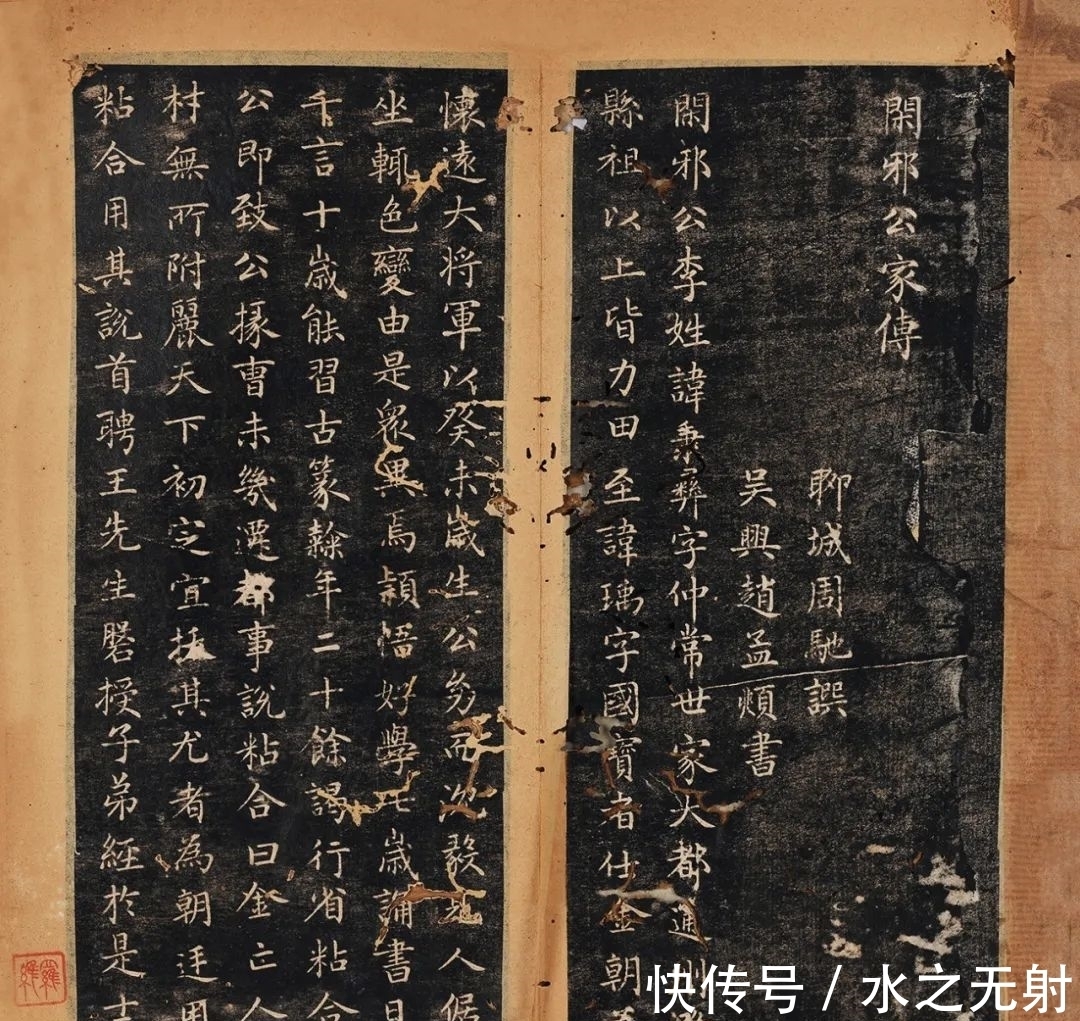 閑邪公家傳
聊城周馳譔
吴興趙孟頫書
閑邪公李姓諱秉彝字仲常世家大都通
縣祖以上皆力田至諱瑀字國寶者仕金朝
懷遠大将軍以癸未歲生公㓜而次毅
坐輒色變由是衆異焉穎悟好學七歲誦書日
千言十歲能習古篆隸年二十餘謁行省粘合
公即致公掾曹未幾遷都事說粘合曰金亡人
材無所附麗天下初定宜拔其尤者為朝廷用
粘合用其說首聘王先生磐授子弟經於是士
快传号 / 水之无射